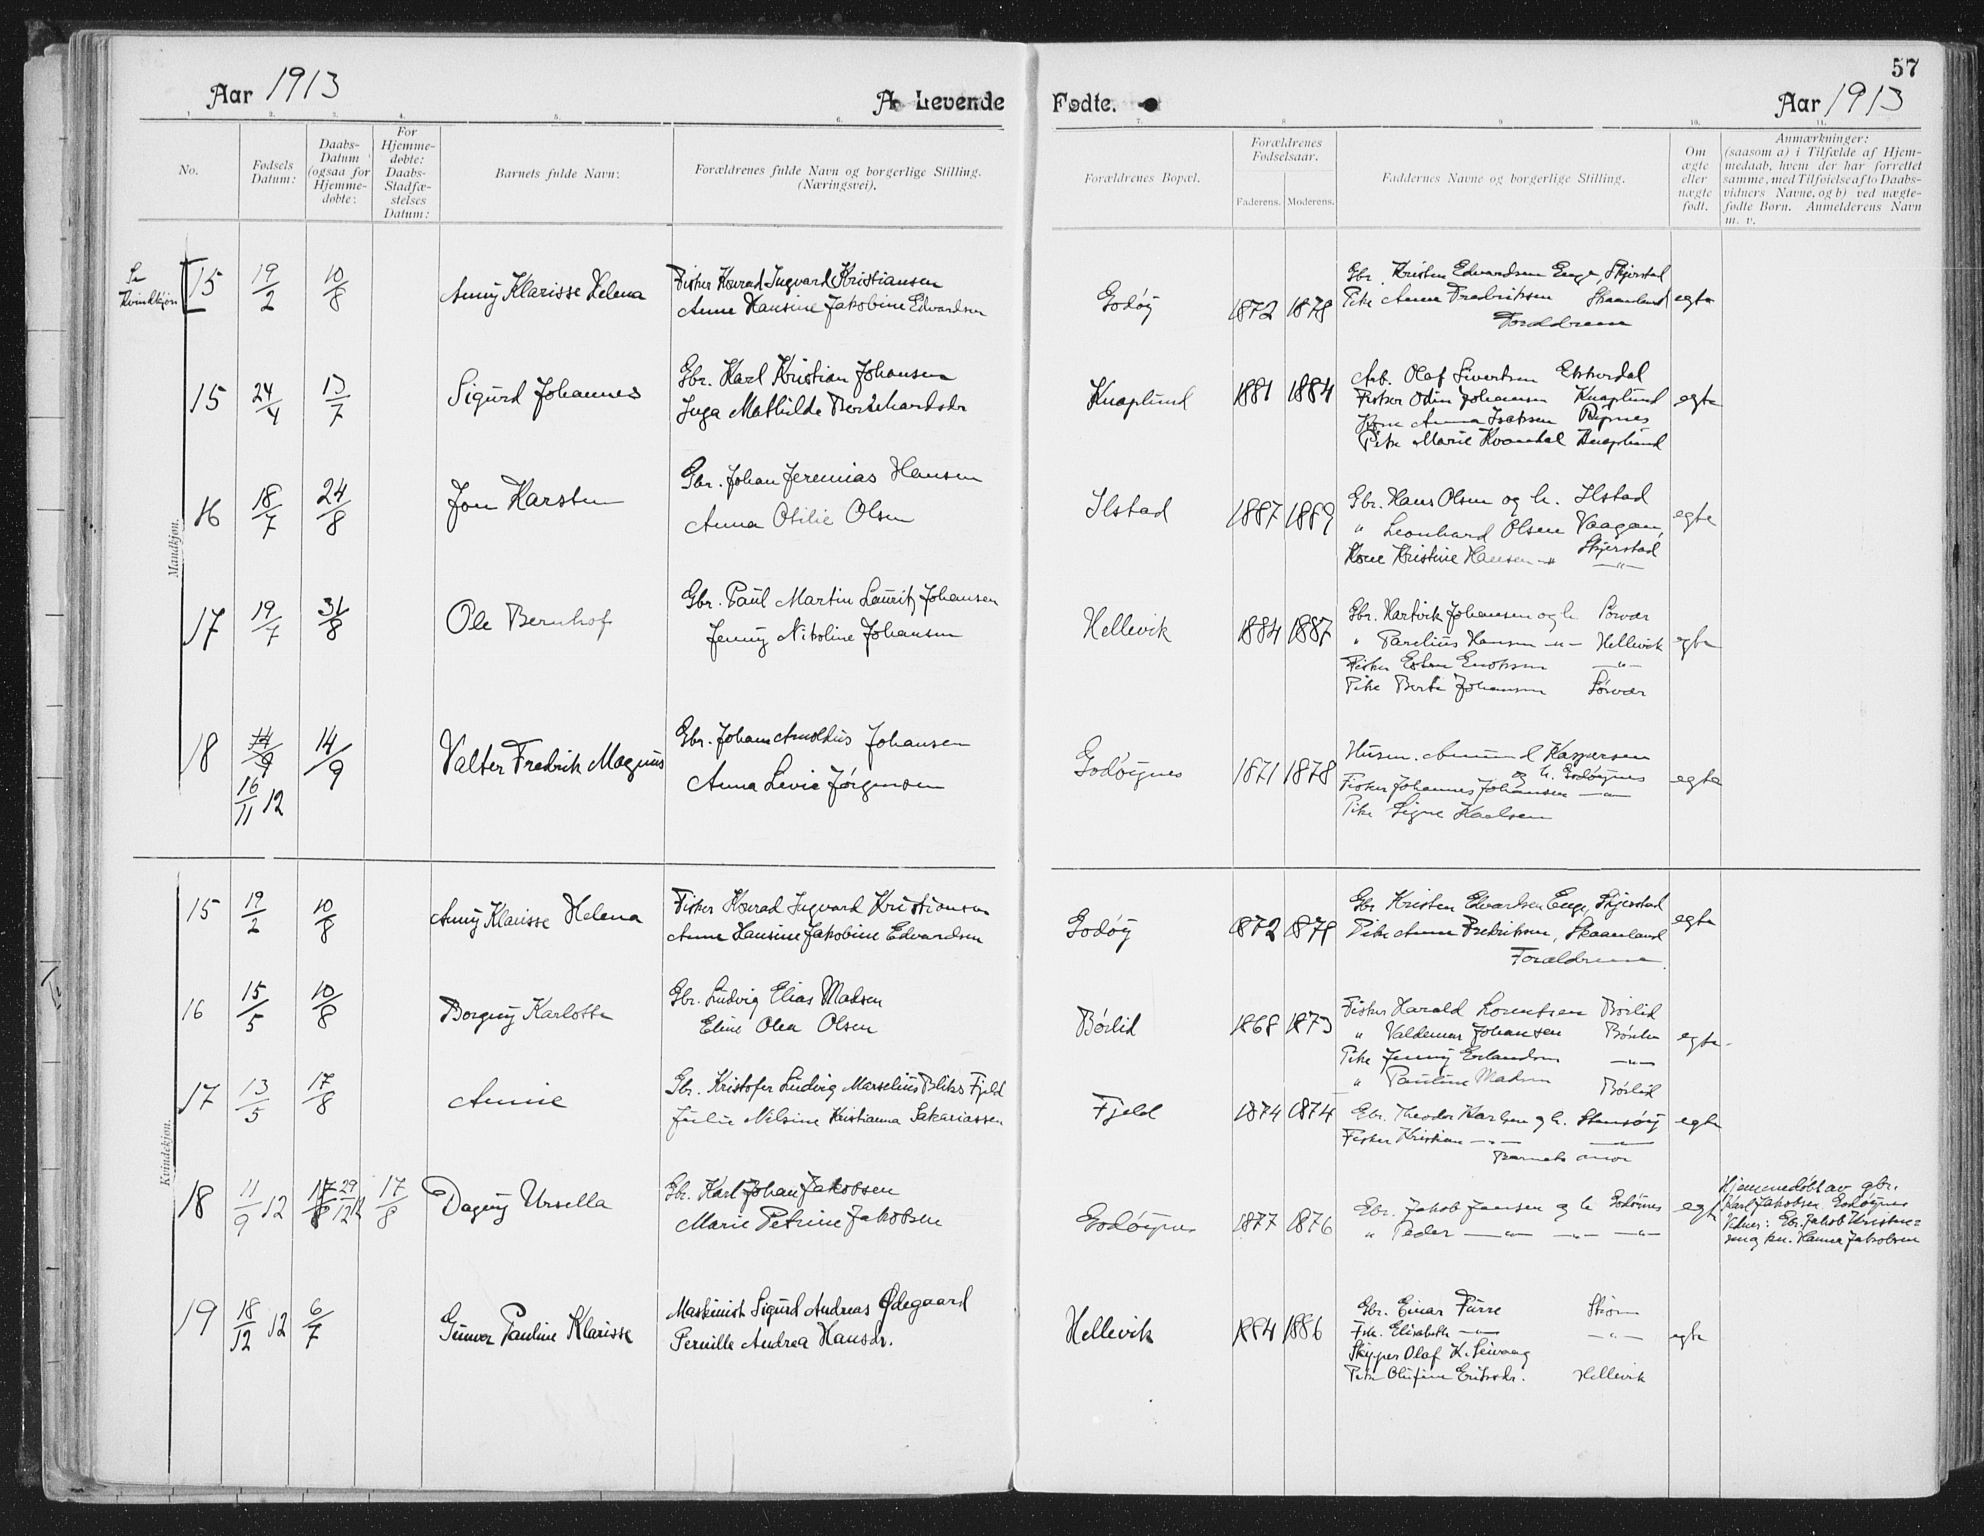 57
Aar 1913
A. Levende Fødte.
Aar 1913
1. 2. 3. 4. 5. 6. 7. 8 9 10. 11.
No.
Fødsels Datum:
Daabs-Datum (ogsaa for Hjemmedøbte:
For Hjemmedøbte: Daabs-Stadfæstelses Datum:
Barnets fulde Navn:
Forældrenes fulde Navn og borgerlige Stilling. (Næringsvei).
Forældrenes Bopæl.
Forældrenes Fødselsaar.
Faderens. Moderens.
Faddernes Navne og borgerlige Stilling.
Om ægte eller uægte født.
Anmærkninger:
(saasom a) i Tilfælde af Hjemmedaab, hvem der har forrettet samme, med Tilføielse af to Daabsvidners Navne, og b) ved uægtefødte Børn. Anmelderens Navn m. v.
Mandkjøn.
Se Kvindkjøn
15 19/2 10/8 Anny Klarisse Helena
Fisker Konrad Ingvard Kristiansen
Anne Hansine Jakobine Edvardsen
Godøy 1872 1878
Gbr. Kristen Edvardsen Enge, Skjerstad
Pike Anna Fredriksen Skaanland
Forældrene
egte
15 24/4 13/7 Sigurd Johannes
Gbr. Karl Kristian Johansen
Inga Mathilde Bernhardsdr
Knaplund 1881 1884
Arb. Olaf Sivertsen
Fisker Odin Johansen Knaplund
Kone Anna Isaksen
Pike Marie Kvandal Knaplund
egte
16 18/7 24/8 Jon Karsten
Gbr. Johan Jeremias Hansen
Anna Otilie Olsen
Ilstad 1887 1889
Gbr. Hans Olsen og h. Ilstad
" Leonhard Olsen Vaagan,
Skjerstad
Kone Kristine Hansen -"- -"-
egte
17 19/7 31/8 Ole Bernhof
Gbr. Paul Martin Lauritz Johansen
Jenny Nikoline Johansen
Hellevik 1884 1887
Gbr. Hartvik Johansen og h. Sørvær
" Parelius Hansen -"- Hellevik
Fisker Esten Enoksen -"-
Pike Berta Johansen Sørvær
egte
18 14/9 14/9 Valter Fredrik Magnus
16/11 12
Gbr. Johan Arnoldus Johansen
Anna Levie Jørgensen
Godøynes 1871 1878
Husm. Amund Kaspersen
og h. Godøynes
Fisker Johannes Johansen -"-
Pike Signe Karlsen
egte
Kvindekjøn.
15 19/2 10/8 Anny Klarisse Helena
Fisker Konrad Ingvard Kristiansen
Anne Hansine Jakobine Edvardsen
Godøy 1872 1878
Gbr Kristen Edvardsen Enge, Skjerstad
Pike Anna Fredriksen, Skaanland
Forældrene.
egte
16 15/5 10/8 Borgny Karlotte
Gbr. Ludvig Elias Madsen
Eline Olea Olsen
Børlid 1868 1873
Fisker Harald Lorentsen Børlid
" Valdemar Johansen
Pike Jenny Erlandsen -"-
" Pauline Madsen Børlid
egte.
17 13/5 17/8 Annie
Gbr. Kristofer Ludvig Marselius Bliks Fjeld
Julie Nilsine Kristianna Sakariassen
Fjeld 1874 1874
Gbr. Theodor Karlsen og h. Stensøy
Fisker Kristian -"- -"-
Barnets mor
egte
18 11/9 12 17/8 29/12 12 17/8 Dagny Ursella
Gbr. Karl Johan Jakobsen
Marie Petrine Jakobsen
Godøynes 1877 1876
Gbr. Jakob Jansen og h. Godøynes
" Peder -"- -"- -"-
egte
Hjemmedøbt av gbr.
Karl Jakobsen Godøynes
Vidner: Gbr. Jakob Kristen=
sen og kn. Hanna Jakobsen
19 18/12 12 6/7 Gunvor Pauline Klarisse
Maskinist Sigurd Andreas Ødegaard
Pernille Andrea Hansdr.
Hellevik 1884 1886
Gbr. Einar Furre Strøm
Frk. Elisabeth -"- -"-
Skipper Olaf K. Seivaag
Pike Olufine Eriksdr. Hellevik
egte